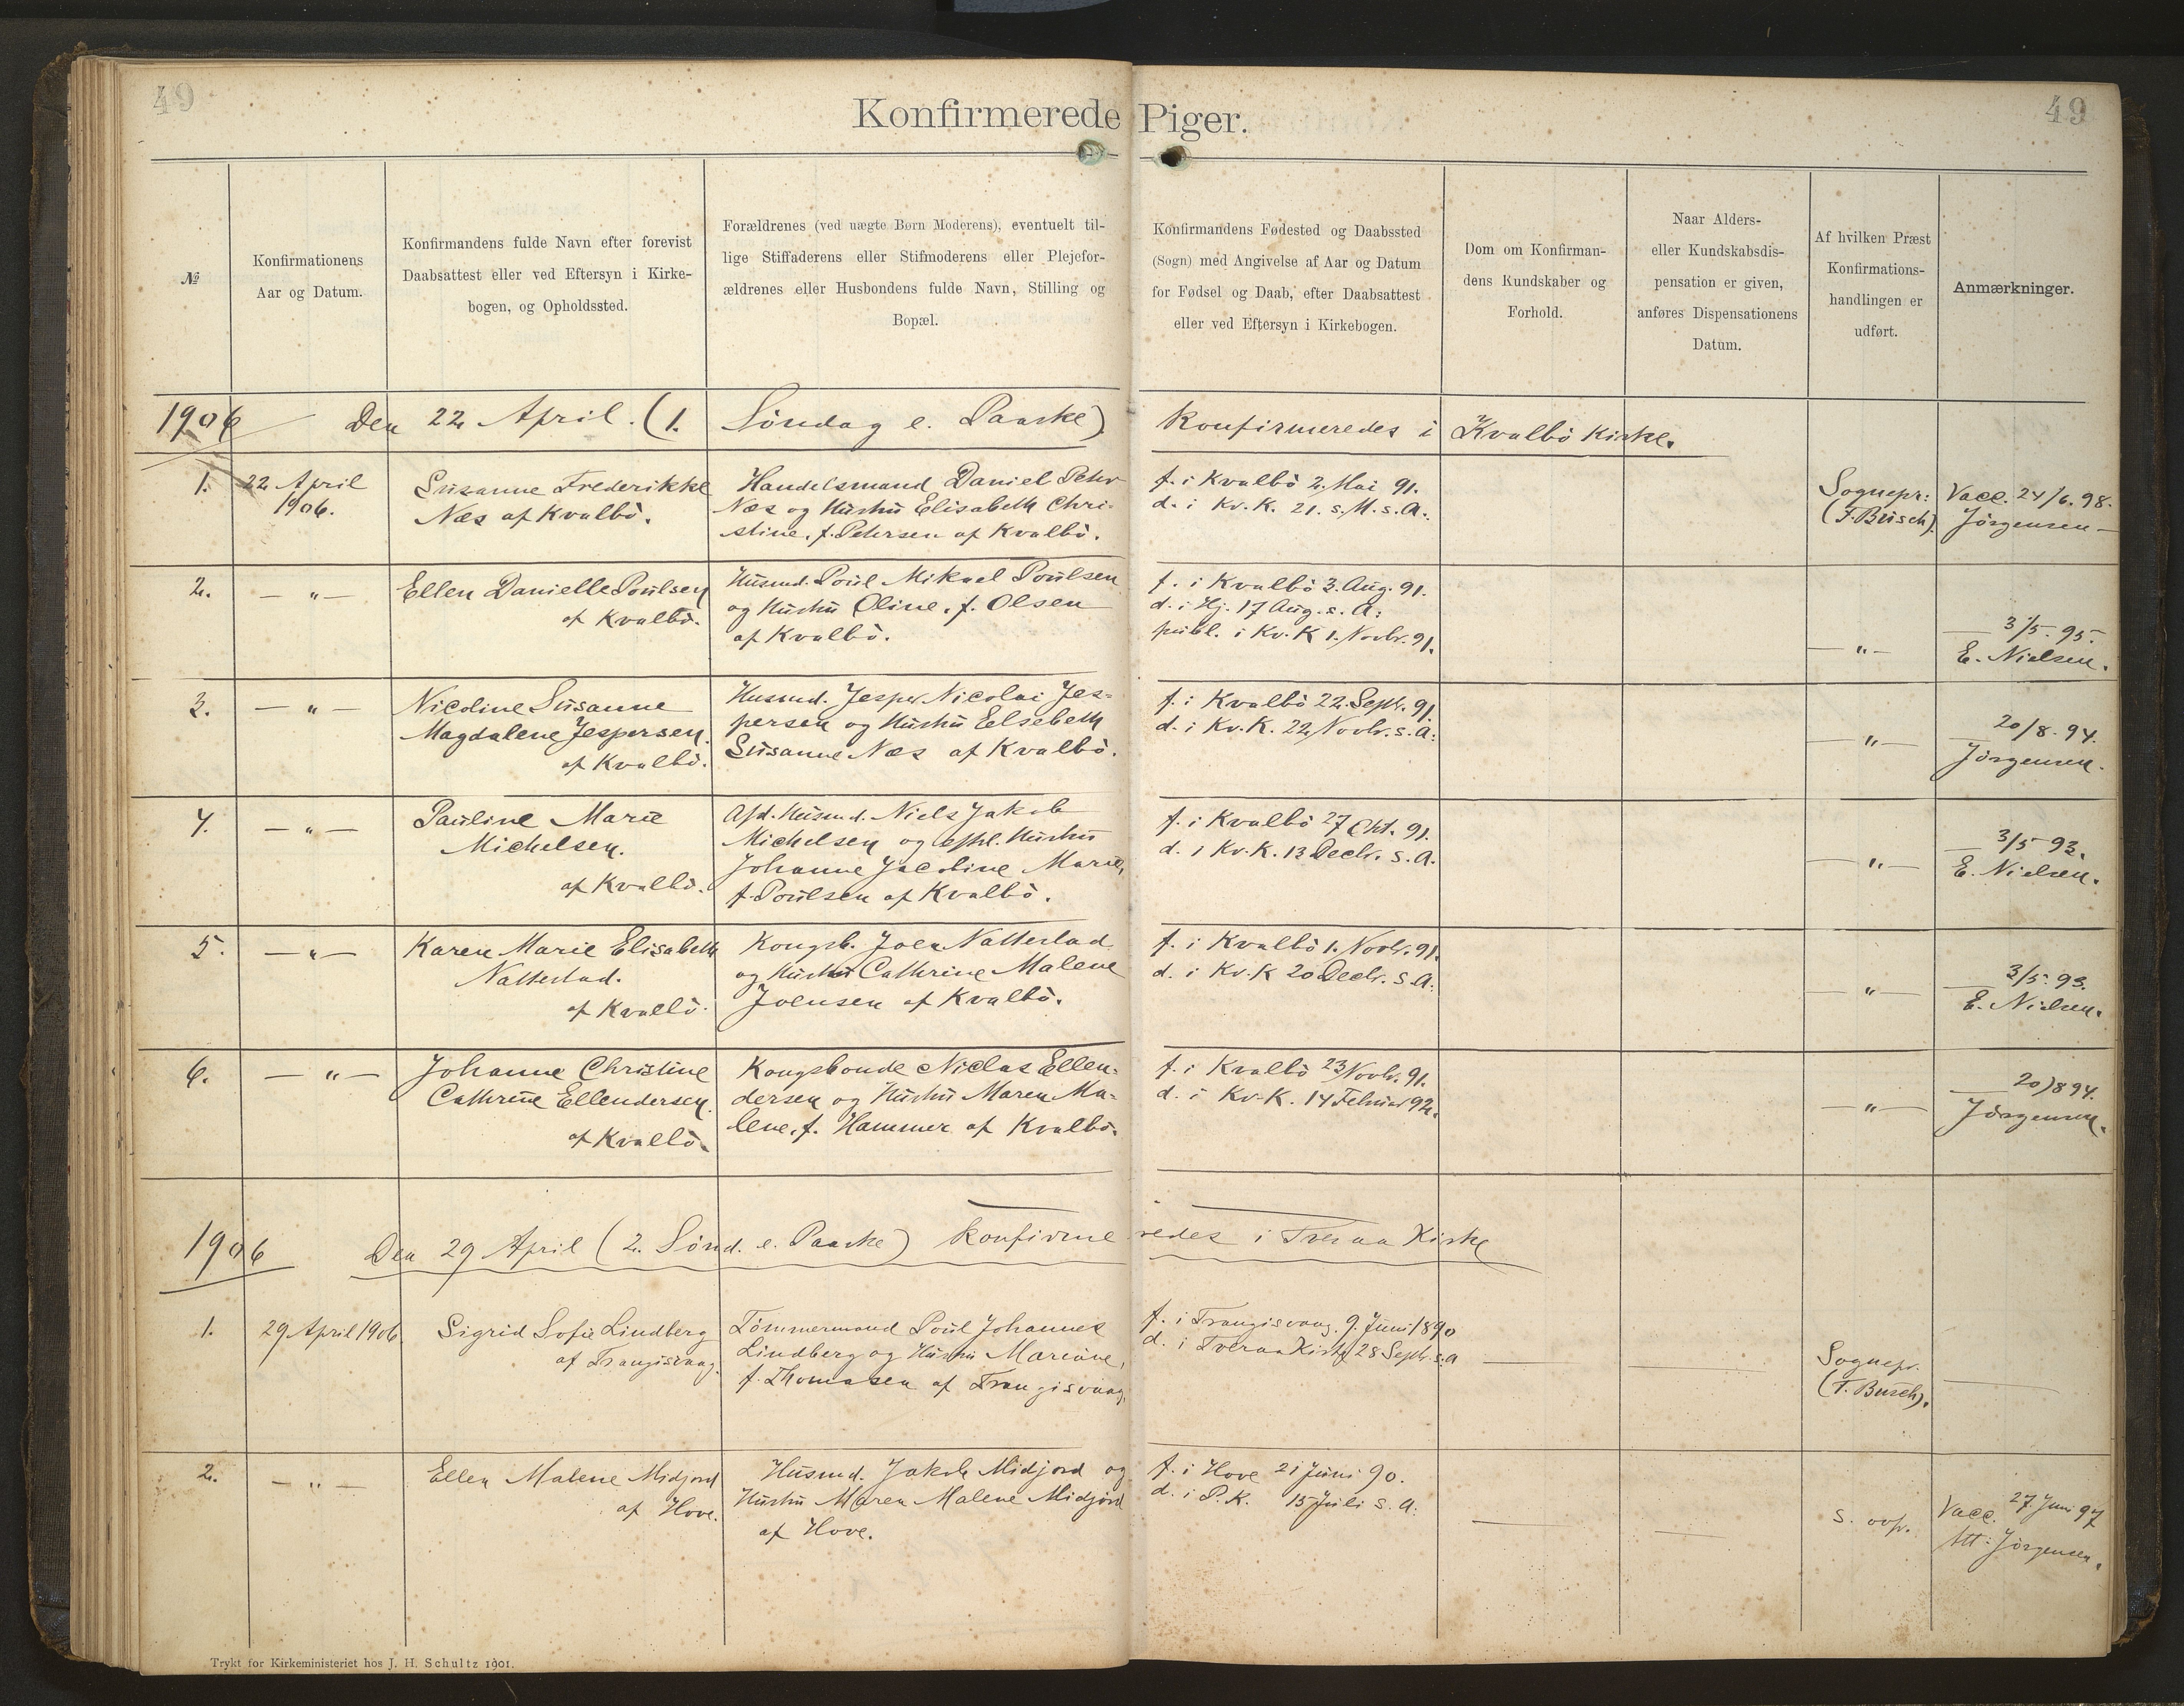 49
49
Konfirmerede Piger.
№
Konfirmationens
Aar og Datum.
Konfirmandens fulde Navn efter forevist
Daabsattest eller ved Eftersyn i Kirke-
bogen, og Opholdssted.
Forældrenes (ved uægte Børn Moderens), eventuelt til-
lige Stiffaderens eller Stifmoderens eller Plejefor-
ældrenes eller Husbondens fulde Navn, Stilling og
Bopæl.
Konfirmandens Fødested og Daabssted
(Sogn) med Angivelse af Aar og Datum
for Fødsel og Daab, efter Daabsattest
eller ved Eftersyn i Kirkebogen.
Dom om Konfirman-
dens Kundskaber og
Forhold.
Naar Alders-
eller Kundskabsdis-
pensation er given,
anføres Dispensationens
Datum.
Af hvilken Præst
Konfirmations-
handlingen er
udført.
Anmærkninger.
1906 Den 22 April. (1. Söndag e. Paaske) Konfirmeredes i Kvalbö Kirke.
1.
22 April
1906.
Susanne Frederikke
Næs af Kvalbö.
Handelsmand Daniel Peter
Næs og Hustru Elisabeth Chri-
stine, f. Petersen af Kvalbö.
f. i Kvalbö 2. Mai 91.
d. i Kv. K. 21. s. M. s. A.
Sognepr:
(F. Busch).
Vacc. 24/6. 98.
Jörgensen —
2.
— " —
Ellen Danielle Poulsen
af Kvalbö.
Husmd. Poul Mikael Poulsen
og Hustru Oline, f. Olsen
af Kvalbö.
f. i Kvalbö 3. Aug. 91.
d. i Hj. 17 Aug. s. A:
publ. i Kv. K 1. Novbr. 91.
— " —
— 3/5. 95.
E. Nielsen.
3.
— " —
Nicoline Susanne
Magdalene Jespersen.
af Kvalbö.
Husmd. Jesper Nicolai Jes-
persen og Hustru Elsebeth
Susanne Næs af Kvalbö.
f. i Kvalbö 22. Septr. 91.
d. i Kv. K. 22 Novbr. s. A:
— " —
— 20/8. 94.
Jörgensen.
4.
— " —
Pauline Marie
Michelsen.
af Kvalbö.
Afd. Husmd. Niels Jakob
Michelsen og efterl. Hustru
Johanne Jacobine Marie,
f. Poulsen af Kvalbö.
f. i Kvalbö 27 Okt. 91.
d. i Kv. K. 13 Decbr. s. A.
— " —
— 3/5 93.
E. Nielsen.
5.
— " —
Karen Marie Elisabeth
Nattestad.
af Kvalbö.
Kongsb. Joen Nattestad
og Hustru Cathrine Malene
Joensen af Kvalbö.
f. i Kvalbö 1. Novbr. 91.
d. i Kv. K 20 Decbr. s. A:
— " —
— 3/5. 93.
E. Nielsen.
6.
— " —
Johanne Christine
Cathrine Ellendersen.
af Kvalbö.
Kongsbonde Niclas Ellen-
dersen og Hustru Maren Ma-
lene, f. Hammer af Kvalbö.
f. i Kvalbö 23 Novbr. 91.
d. i Kv. K. 14 Februar 92.
— " —
— 20/8 94.
Jörgensen.
1906 Den 29 April (2. Sönd. e. Paaske) Konfirmeredes i Tveraa Kirke
1.
29 April 1906.
Sigrid Sofie Lindberg
af Trangisvaag.
Tömmermand Poul Johannes
Lindberg og Hustru Mariane,
f. Thomasen af Trangisvaag.
f. i Trangisvaag. 9. Juni 1890
d. i Tveraa Kirke 28 Septr. s. A
Sognepr.
(F. Busch).
2.
— " —
Ellen Malene Midjord
af Hove.
Husmd. Jakob Midjord og
Hustru Maren Malene Midjord
af Hove.
f. i Hove 21 Juni 90.
d. i P. K. 15 Juli s. A.
s. ovf.
Vacc. 27. Juni 97
Att: Jörgensen.
Trykt for Kirkeministeriet hos J. H. Schultz 1901.